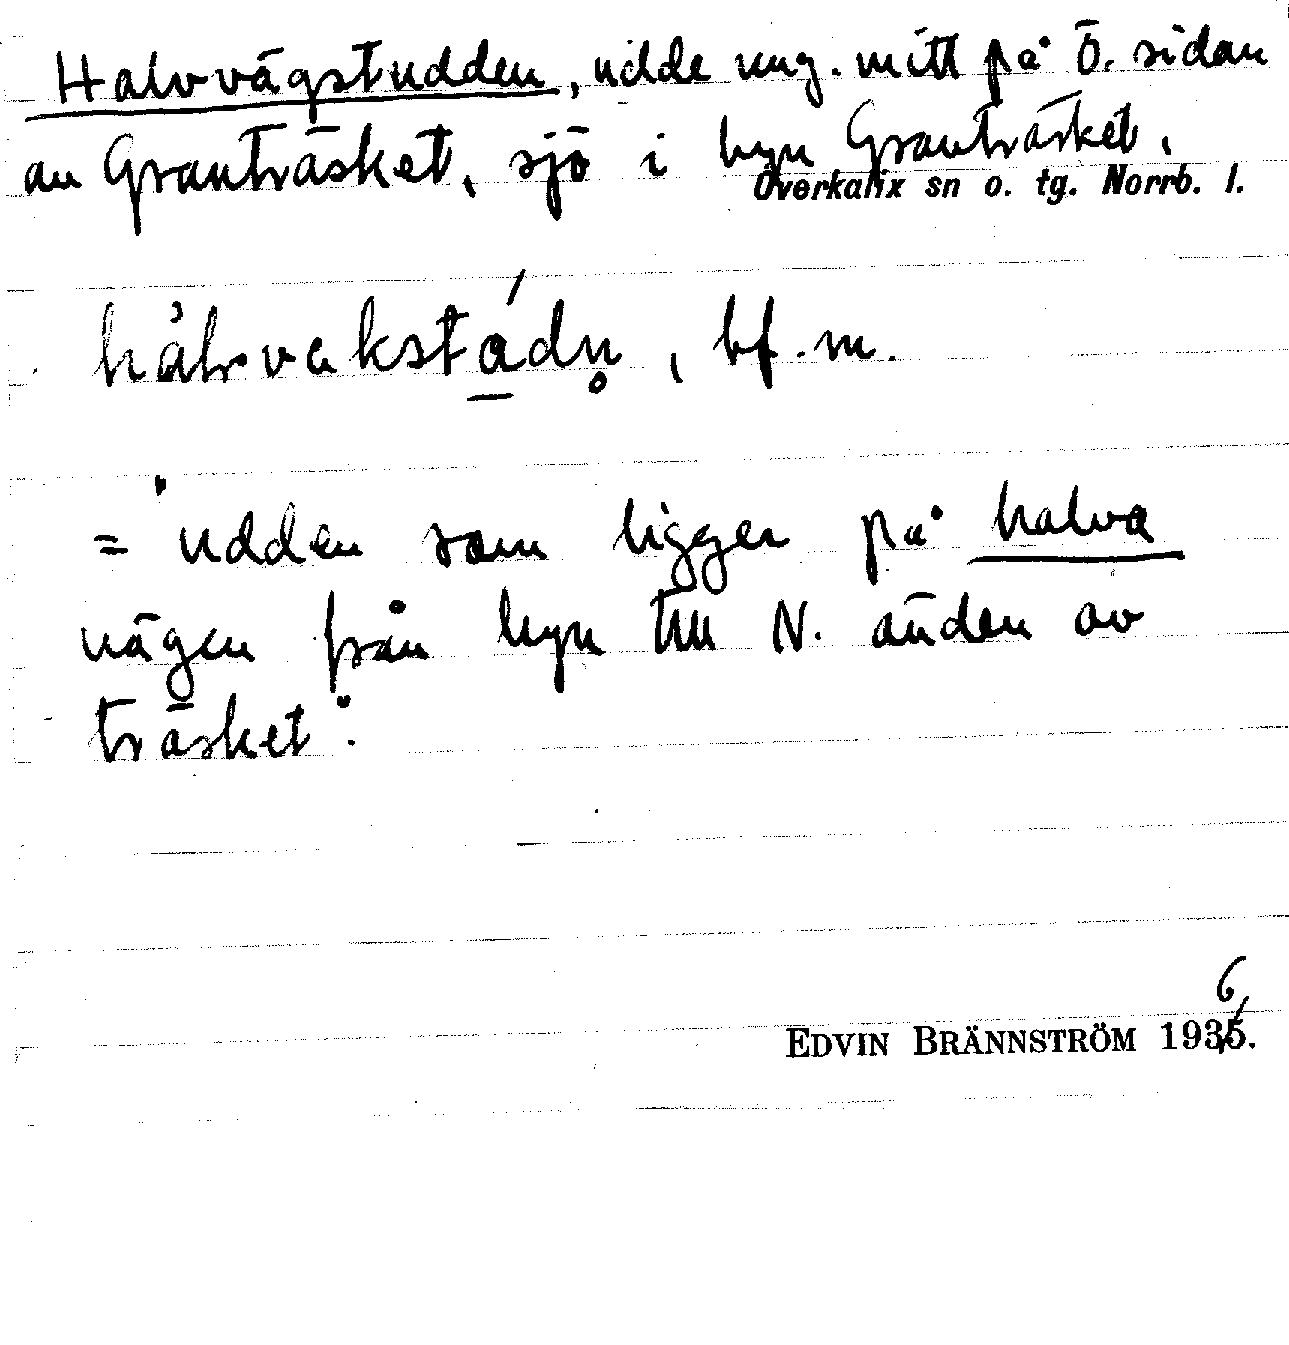 Halvvägstudden, udde ung. mitt på Ö. sidan
av Granträsket, sjö i byn Granträsket,
Överkalix sn o. tg. Norrb. l.
hàlvvakstádn̥, bf. m.
= "udden som ligger på halva
vägen från byn till N. änden av
träsket".
6
EDVIN BRÄNNSTRÖM 1935.